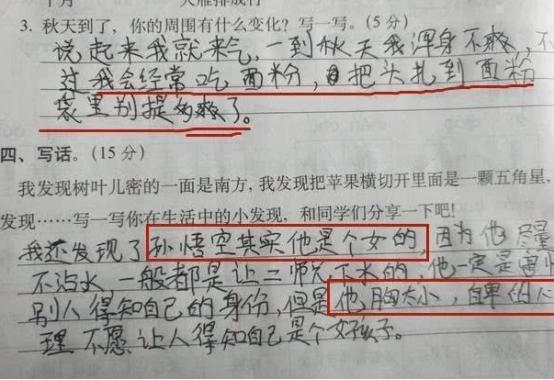 十月 大雁排成行
3. 秋天到了，你的周围有什么变化？写一写。(5分)
说起来我就来气，一到秋天我浑身不爽，不
过我会经常吃面粉，把头扎到面粉
袋里别提多爽了。
四、写话。(15分)
我发现树叶儿密的一面是南方，我发现把苹果横切开里面是一颗五角星，
发现……写一写你在生活中的小发现，和同学们分享一下吧！
我还发现了孙悟空其实他是个女的，因为他尽量
不沾水，一般都是让二师兄下水的，他一定是害怕
别人得知自己的身份，但是他胸太小，自卑的心
理不愿让人得知自己是个女孩子。